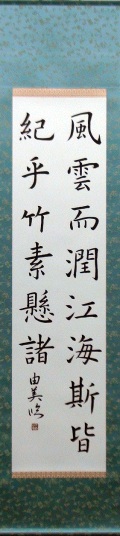 風雲而潤江海斯皆
紀乎竹素懸諸
由美臨